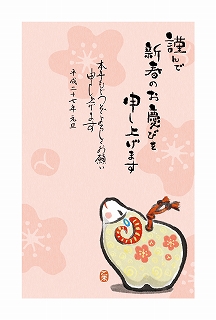 謹んで
新春のお慶びを
申し上げます
本年もどうぞよろしくお願い
申し上げます
平成二十七年 元旦